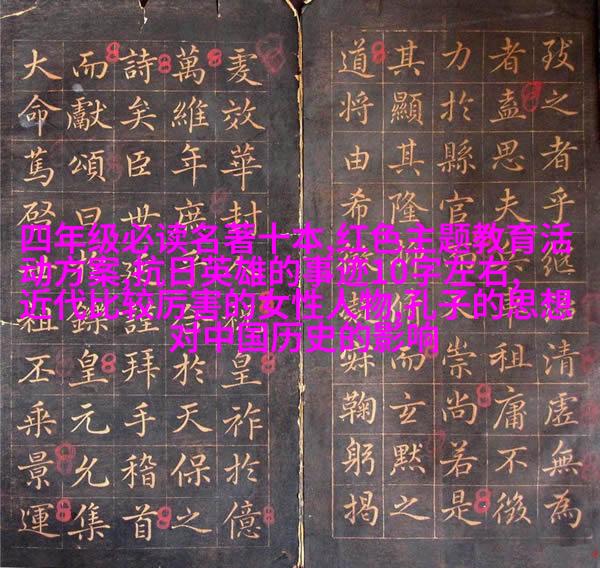 四年级必读名著十本,红色主题教育活
动方案,抗日英雄的事迹10字左右,
近代比较厉害的女性人物,孔子的思想
对中国历史的影响
之者乎清虚無為
者盍思夫祖庸不徵
力於縣官崇尚若是
其顯其隆而玄默之
道将由希鞠躬揭
效華封皇祚於億
萬維年庶於天保之
詩矣臣世謹拜手稽首
而獻頌曰皇元允集
大命篤啓祖丕乘景運